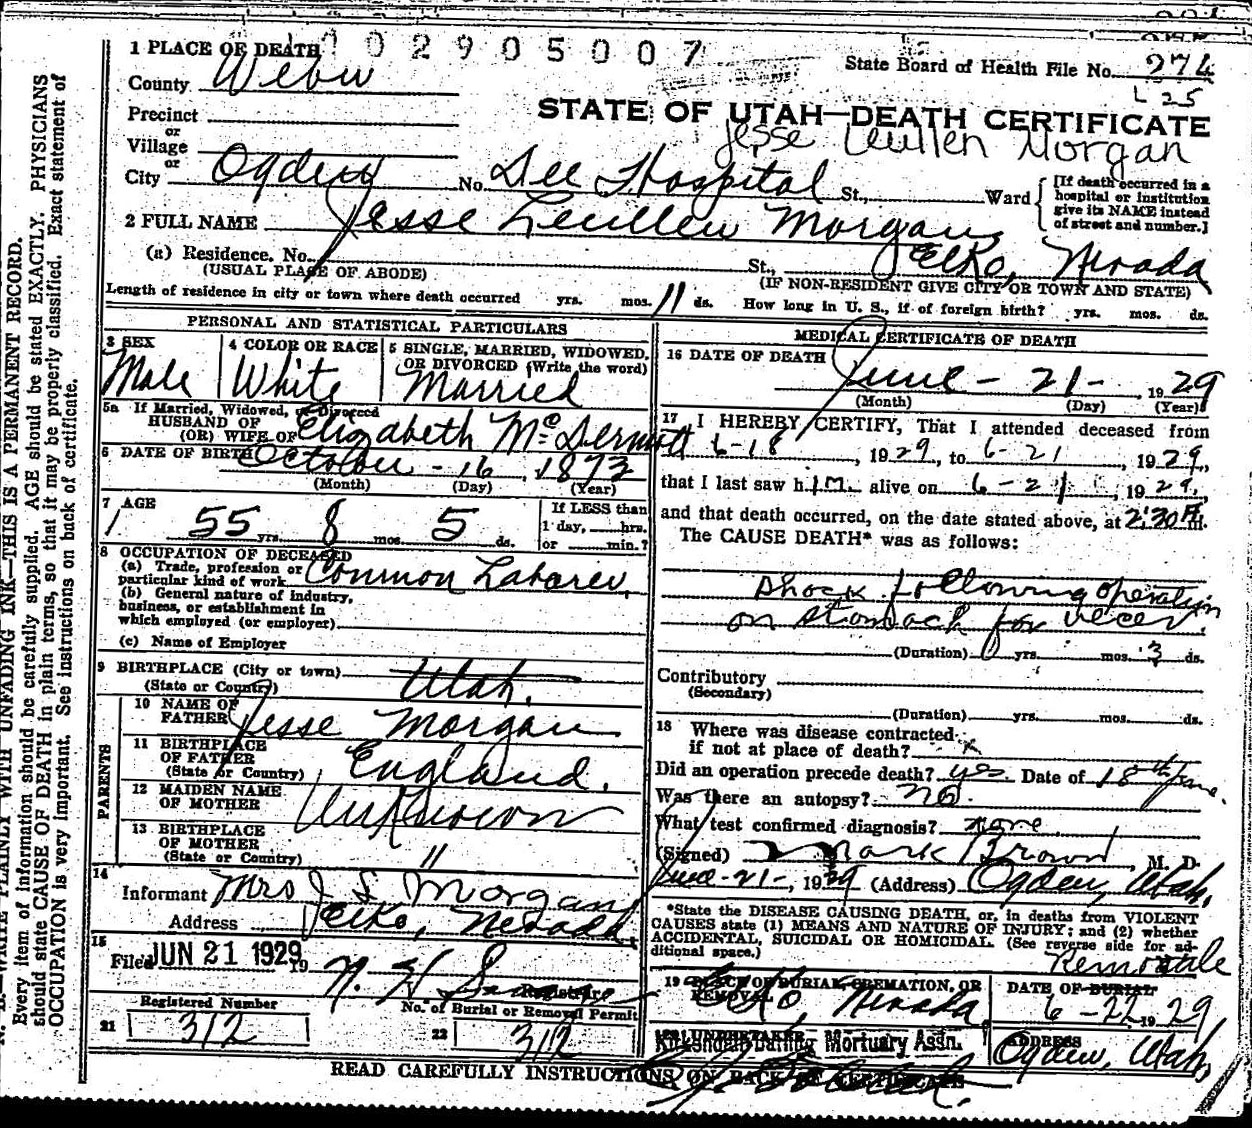 1 PLACE OF DEATH
002905007
State Board of Health File No. 274
L 25
County Weber
STATE OF UTAH—DEATH CERTIFICATE
Precinct
or
Village
Jesse Leullen Morgan
or
City Ogden No. Dee Hospital St., Ward
[If death occurred in a hospital or institution give its NAME instead of street and number.]
2 FULL NAME Jesse Leullen Morgan
(a) Residence. No. St., Elko, Nevada
(USUAL PLACE OF ABODE) (IF NON-RESIDENT GIVE CITY OR TOWN AND STATE)
Length of residence in city or town where death occurred yrs. mos. 11 ds. How long in U. S., if of foreign birth? yrs. mos. ds.
PERSONAL AND STATISTICAL PARTICULARS
3 SEX
Male
4 COLOR OR RACE
White
5 SINGLE, MARRIED, WIDOWED, OR DIVORCED (Write the word)
Married
5a If Married, Widowed, or Divorced
HUSBAND OF
(OR) WIFE OF Elizabeth McDermott
6 DATE OF BIRTH October - 16, 1873
(Month) (Day) (Year)
7 AGE
55 yrs. 8 mos. 5 ds.
If LESS than
1 day, hrs.
or min.?
8 OCCUPATION OF DECEASED
(a) Trade, profession or
particular kind of work Common Laborer,
(b) General nature of industry,
business, or establishment in
which employed (or employer)
(c) Name of Employer
9 BIRTHPLACE (City or town)
(State or Country) Utah.
PARENTS
10 NAME OF
FATHER Jesse Morgan
11 BIRTHPLACE
OF FATHER
(State or Country) England.
12 MAIDEN NAME
OF MOTHER Unknown
13 BIRTHPLACE
OF MOTHER
(State or Country) "
14
Informant Mrs J L Morgan
Address Elko, Nevada
15
Filed JUN 21 1929 19
Registrar
Registered Number
21 312
No. of Burial or Removal Permit
22 312
MEDICAL CERTIFICATE OF DEATH
16 DATE OF DEATH
June - 21 - 1929
(Month) (Day) (Year)
17 I HEREBY CERTIFY, That I attended deceased from
6-18, 1929, to 6-21, 1929,
that I last saw him alive on 6-21, 1929,
and that death occurred, on the date stated above, at 2:30 P.M.
The CAUSE DEATH* was as follows:
Shock following operation
on stomach for ulcer.
(Duration) 0 yrs. mos. 3 ds.
Contributory
(Secondary)
(Duration) yrs. mos. ds.
18 Where was disease contracted
if not at place of death? x
Did an operation precede death? yes Date of 18th June.
Was there an autopsy? no.
What test confirmed diagnosis? none
(Signed) Mark Brown, M. D.
June-21-, 1929 (Address) Ogden, Utah.
*State the DISEASE CAUSING DEATH, or, in deaths from VIOLENT
CAUSES state (1) MEANS AND NATURE OF INJURY; and (2) whether
ACCIDENTAL, SUICIDAL OR HOMICIDAL. (See reverse side for additional space.)
Removale
19 PLACE OF BURIAL, CREMATION, OR
REMOVAL Elko, Nevada
DATE OF BURIAL
6-22 1929
UNDERTAKER
Mortuary Assn.
ADDRESS
Ogden, Utah,
READ CAREFULLY INSTRUCTIONS ON BACK OF CERTIFICATE
N. B.—WRITE PLAINLY WITH UNFADING INK—THIS IS A PERMANENT RECORD.
Every item of information should be carefully supplied. AGE should be stated EXACTLY. PHYSICIANS
should state CAUSE OF DEATH in plain terms, so that it may be properly classified. Exact statement of
OCCUPATION is very important. See instructions on back of certificate.